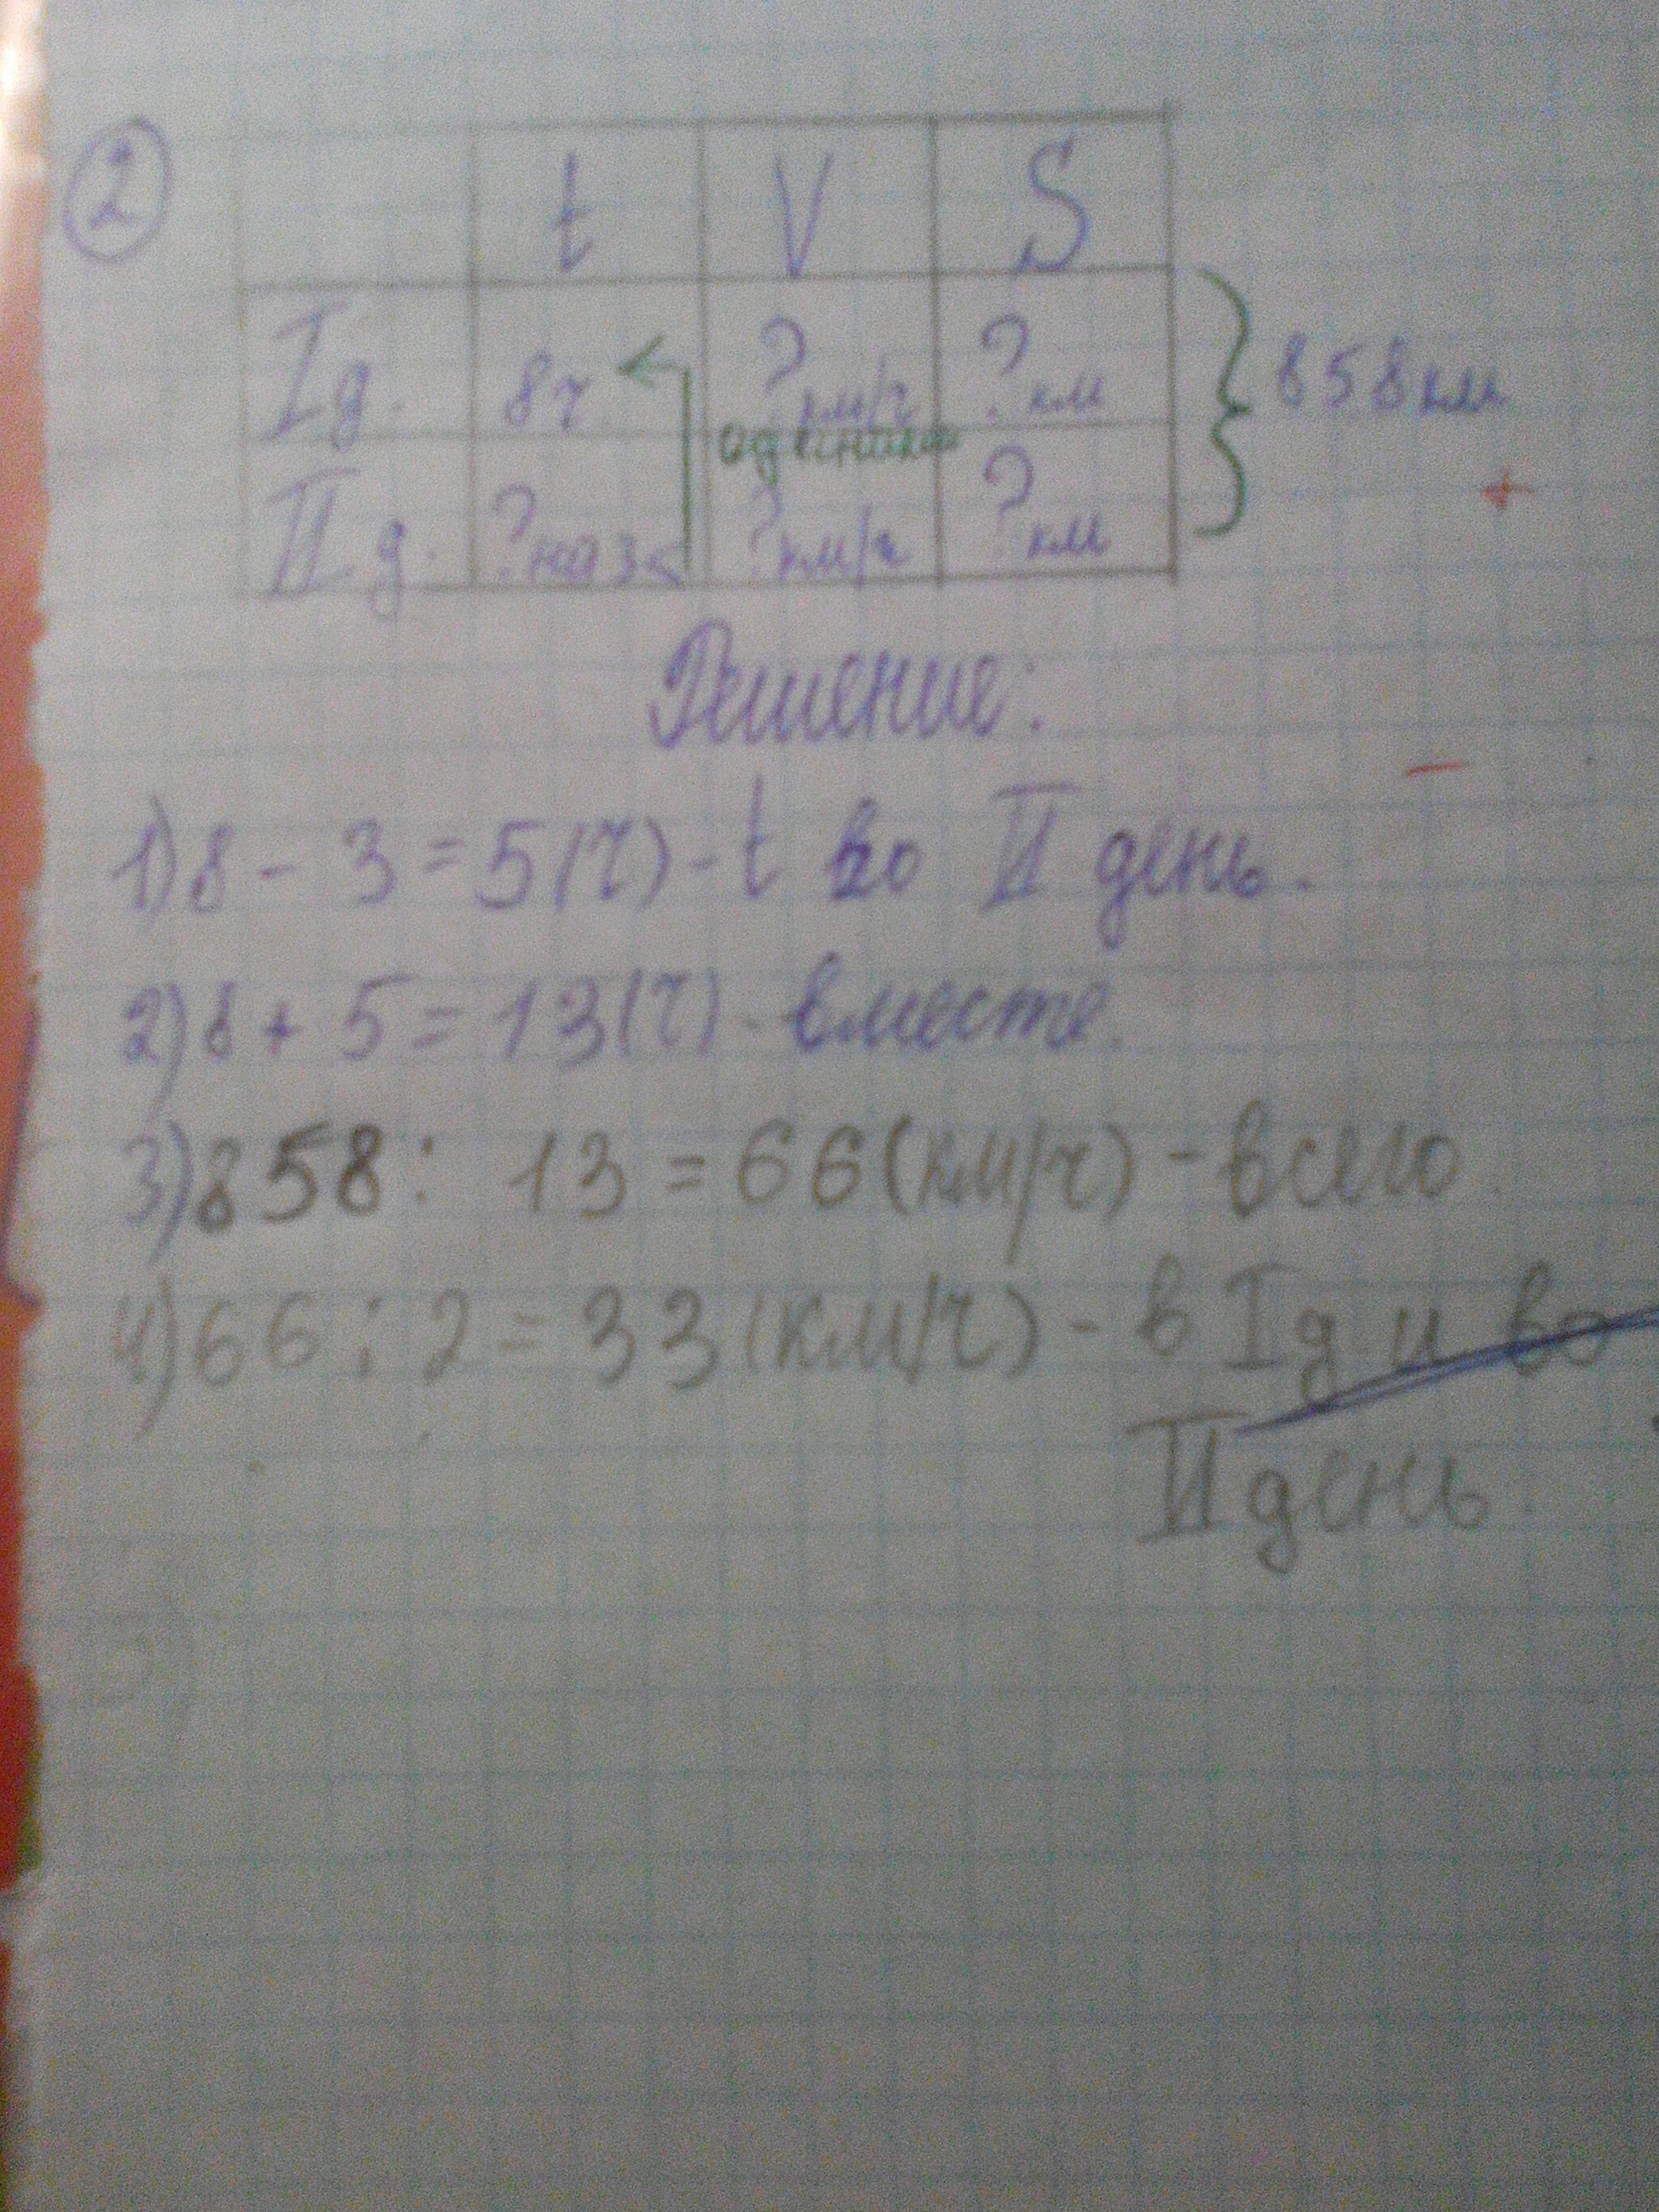 2
t V S
I д. 8ч. ? км/ч ? км
одинаков
858 км
II д. ? на 3< ? км/ч ? км
+
Решение:
−
1) 8 - 3 = 5 (ч) - t во II день.
2) 8 + 5 = 13 (ч) - вместе.
3) 858 : 13 = 66 (км/ч) - всего.
4) 66 : 2 = 33 (км/ч) - в I д и во
II день.